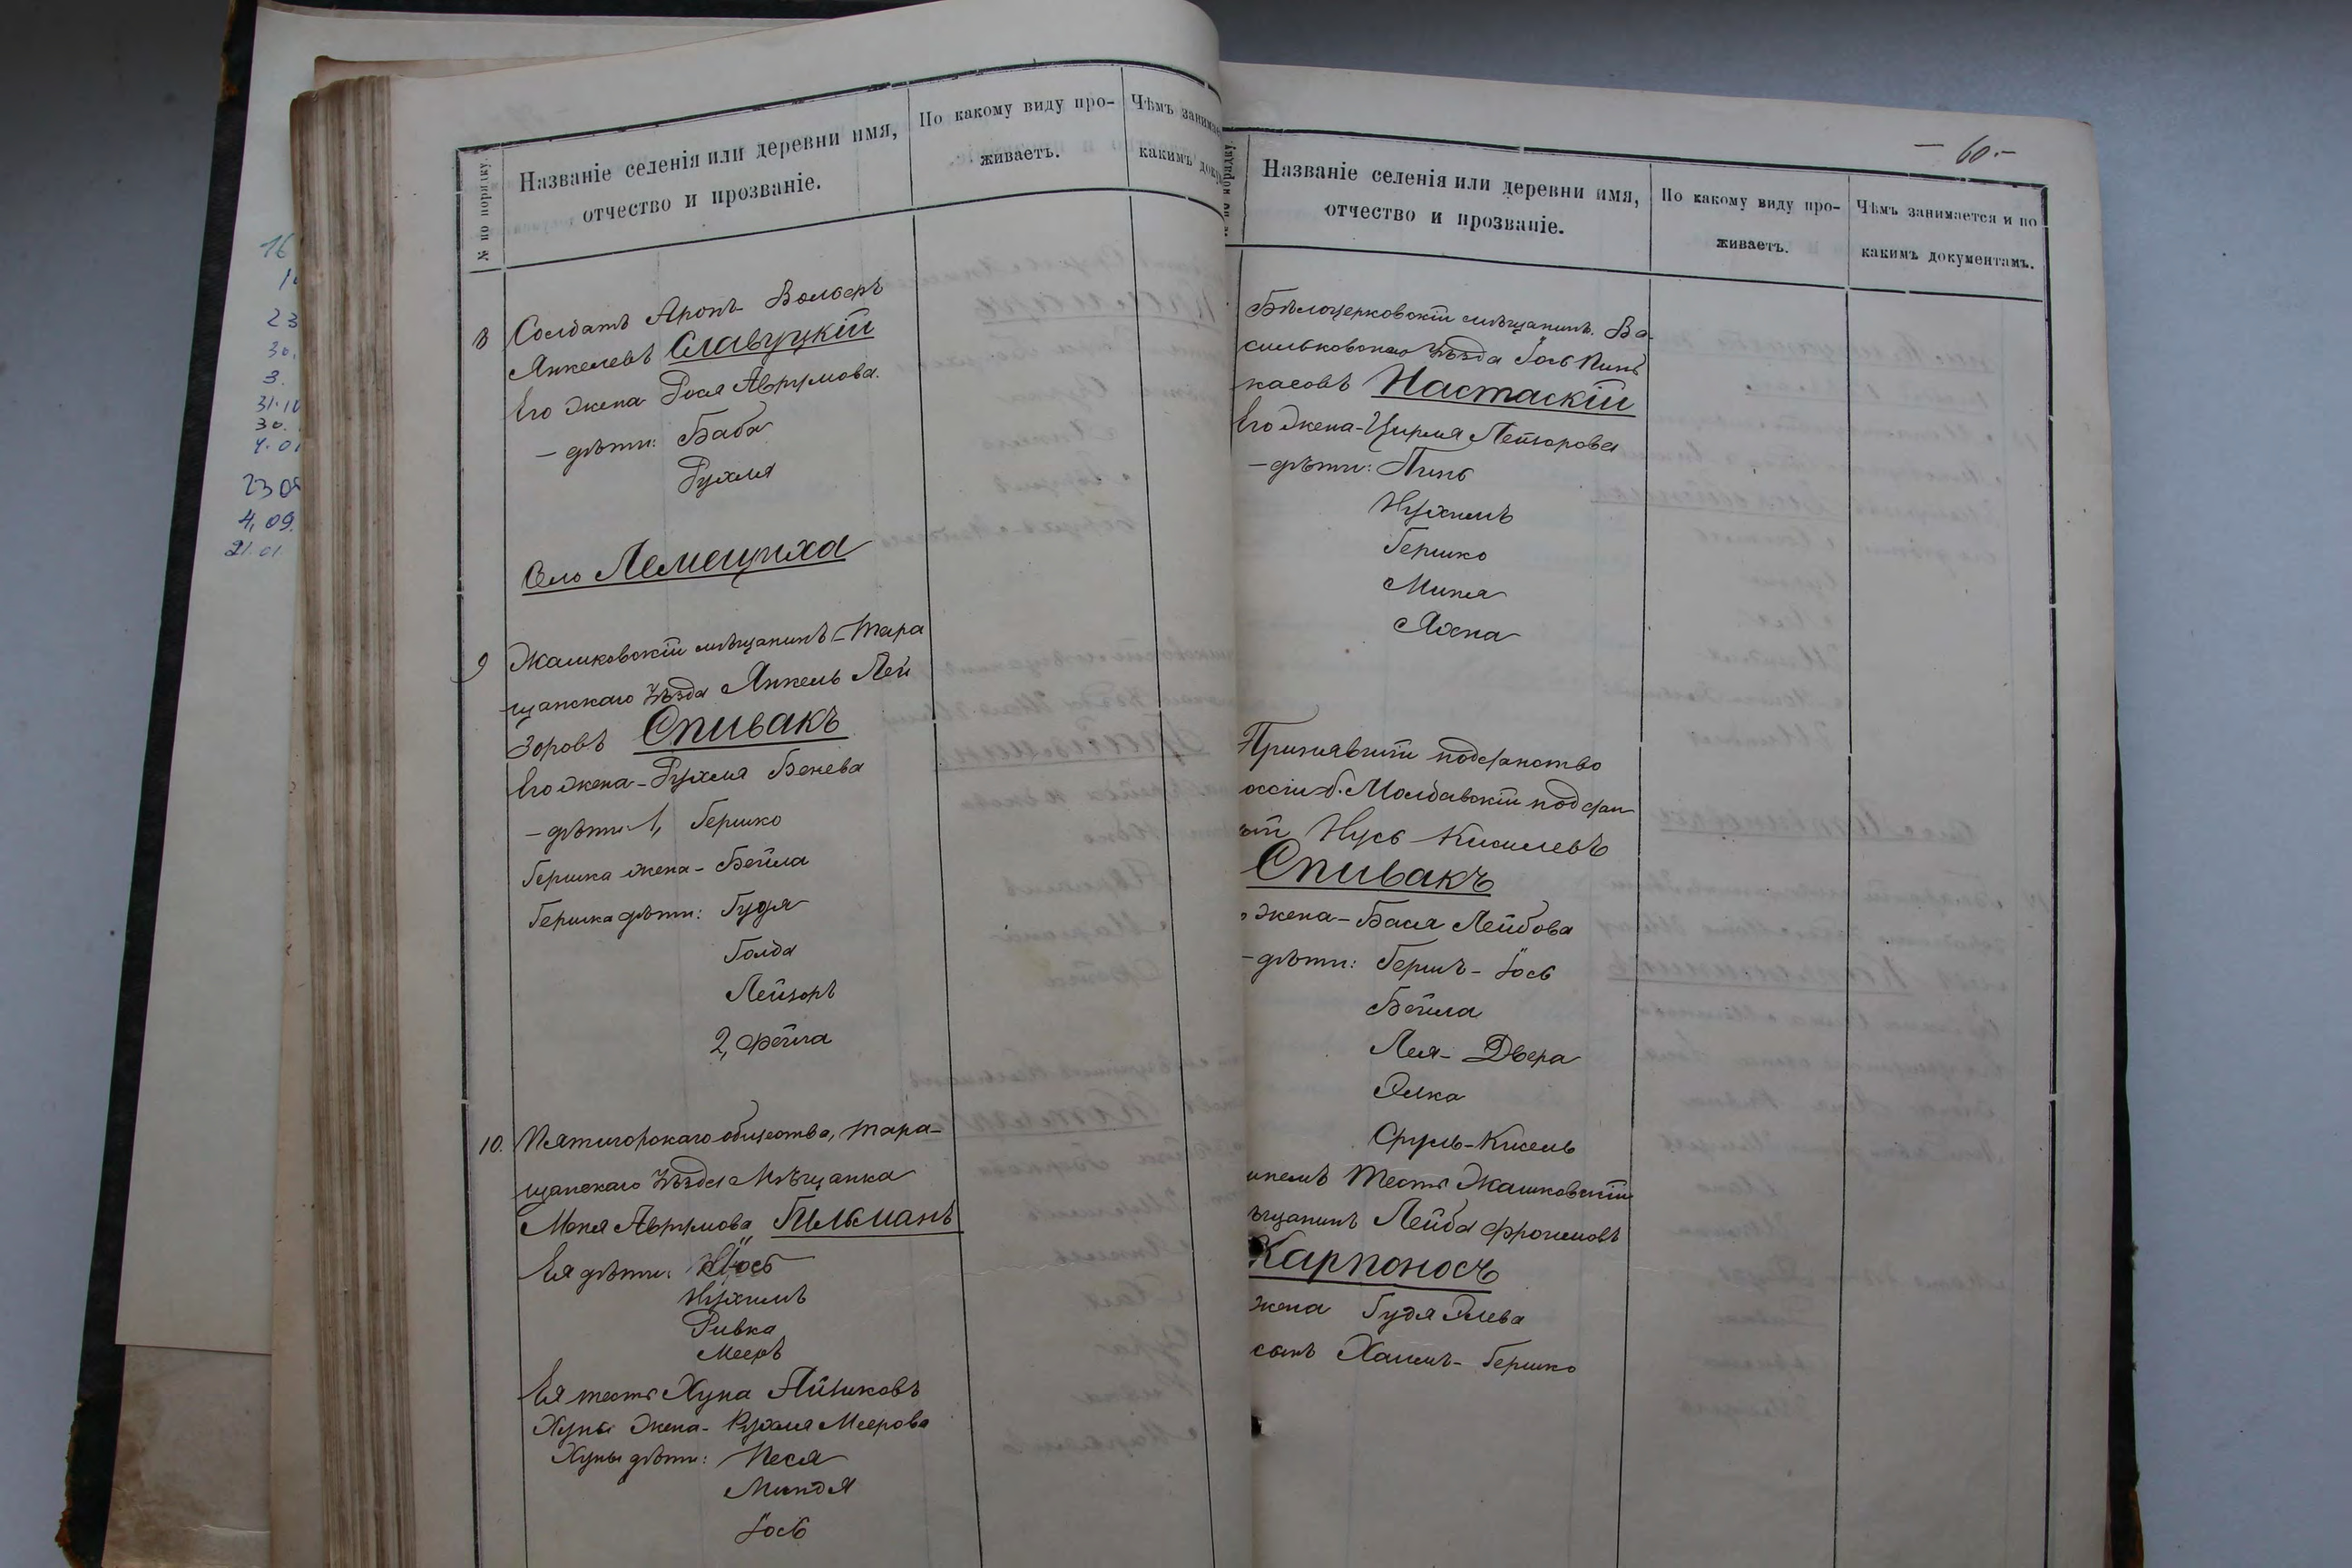 № по порядку.
Названіе селенія или деревни имя,
отчество и прозваніе.
По какому виду про-
живаетъ.
Чѣмъ занимае
какимъ доку
8 Солдатъ Аронъ Вольфъ
Янкелевъ Славуцкій
Его жена Рося Аврумова.
— дѣти: Баба
Рухля
Село Лемещиха
9 Жашковскій мѣщанинъ Тара
щанскаго уѣзда Янкель Лей
зоровъ Спивакъ
Его жена - Рухля Бенева
— дѣти: 1, Гершко
Гершка жена - Бейла
Гершка дѣти: Гудя
Голда
Лейзоръ
2, Фейга
10. Пятигорскаго общества, Тара-
щанскаго уѣзда Мѣщанка
Маня Аврумова Гильманъ
Ея дѣти: Іось
Нухимъ
Ривка
Мееръ
Ея тесть Хуна Айзиковъ
Хуны жена - Рухля Меерова
Хуны дѣти: Песя
Миндя
Іось
— 60 —
Названіе селенія или деревни имя,
отчество и прозваніе.
По какому виду про-
живаетъ.
Чѣмъ занимается и по
какимъ документамъ.
Бѣлоцерковскій мѣщанинъ. Ва-
сильковскаго уѣзда Іось Пинь
касовъ Настаскій
Его жена - Цирля Лейзорова
— дѣти: Пинь
Нухимъ
Гершко
Миня
Яхна
Принявшій подданство
оссіи б. Молдавскій поддан
ый Нусь Киселевъ
Спивакъ
жена - Бася Лейбова
— дѣти: Гершъ - Іось
Бейла
Лея - Двера
Элка
Сруль - Кисель
Тесть Жашковскій
ѣщанинъ Лейба Фроимовъ
Карпоносъ
жена Гудя Элева
сынъ Хаимъ - Гершко
16
23
30.
3.
31.10
30.
4.01
2309
4.09.
21.01